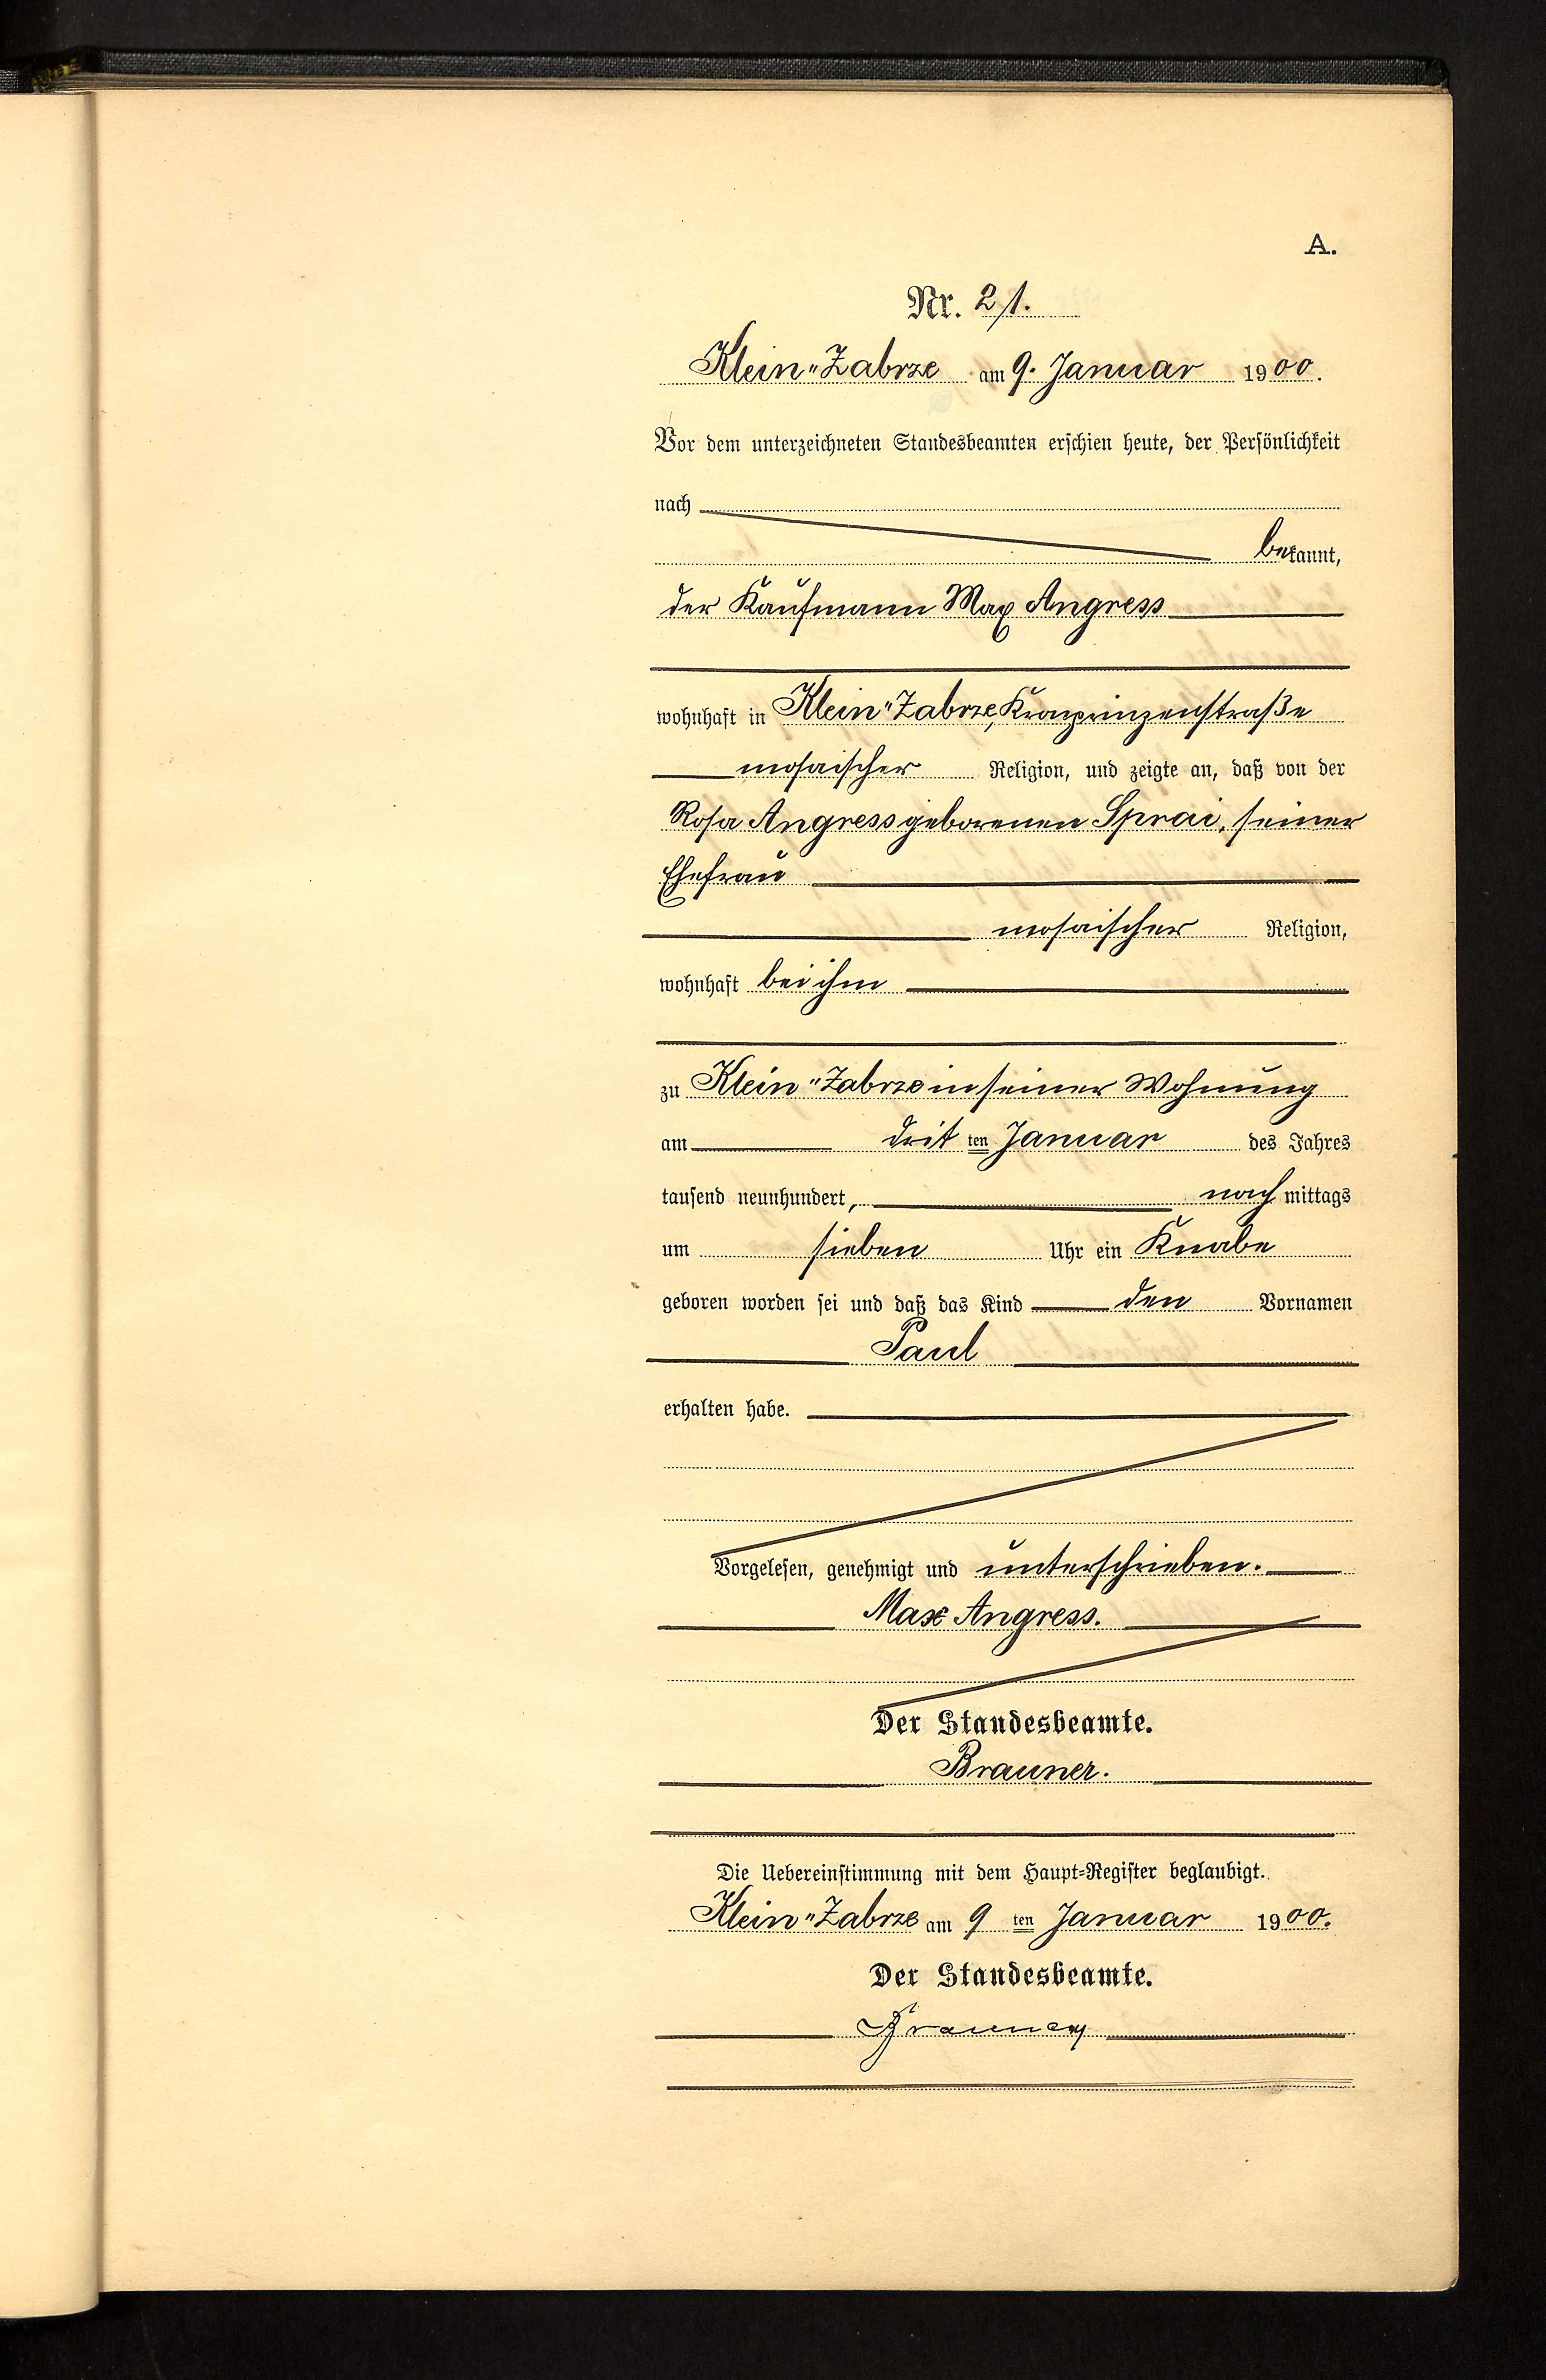 A.
Nr. 21.
Klein-Zabrze am 9. Januar 1900.
Vor dem unterzeichneten Standesbeamten erschien heute, der Persönlichkeit
nach
bekannt,
der Kaufmann Max Angress
wohnhaft in Klein-Zabrze, Kronprinzenstraße
mosaischer Religion, und zeigte an, daß von der
Rosa Angress geborenen Sprai, seiner
Ehefrau
mosaischer Religion,
wohnhaft bei ihm
zu Klein-Zabrze in seiner Wohnung
am dritten Januar des Jahres
tausend neunhundert, nach mittags
um sieben Uhr ein Knabe
geboren worden sei und daß das Kind den Vornamen
Paul
erhalten habe.
Vorgelesen, genehmigt und unterschrieben.
Max Angress.
Der Standesbeamte.
Brauner.
Die Uebereinstimmung mit dem Haupt-Register beglaubigt.
Klein-Zabrze am 9ten Januar 1900.
Der Standesbeamte.
Brauner